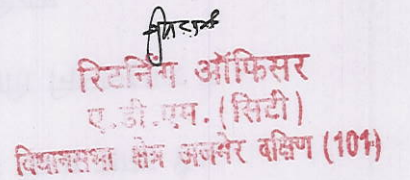 रिटर्निंग ऑफिसर
ए.डी.एम.(सिटी)
विधानसभा क्षेत्र अजमेर दक्षिण (101)